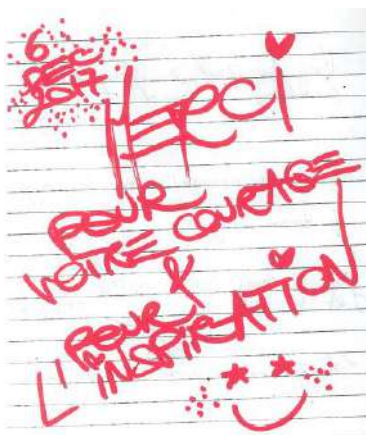 6
DEC
2017
MERCI
POUR
VOTRE COURAGE
&
POUR
L'INSPIRATION